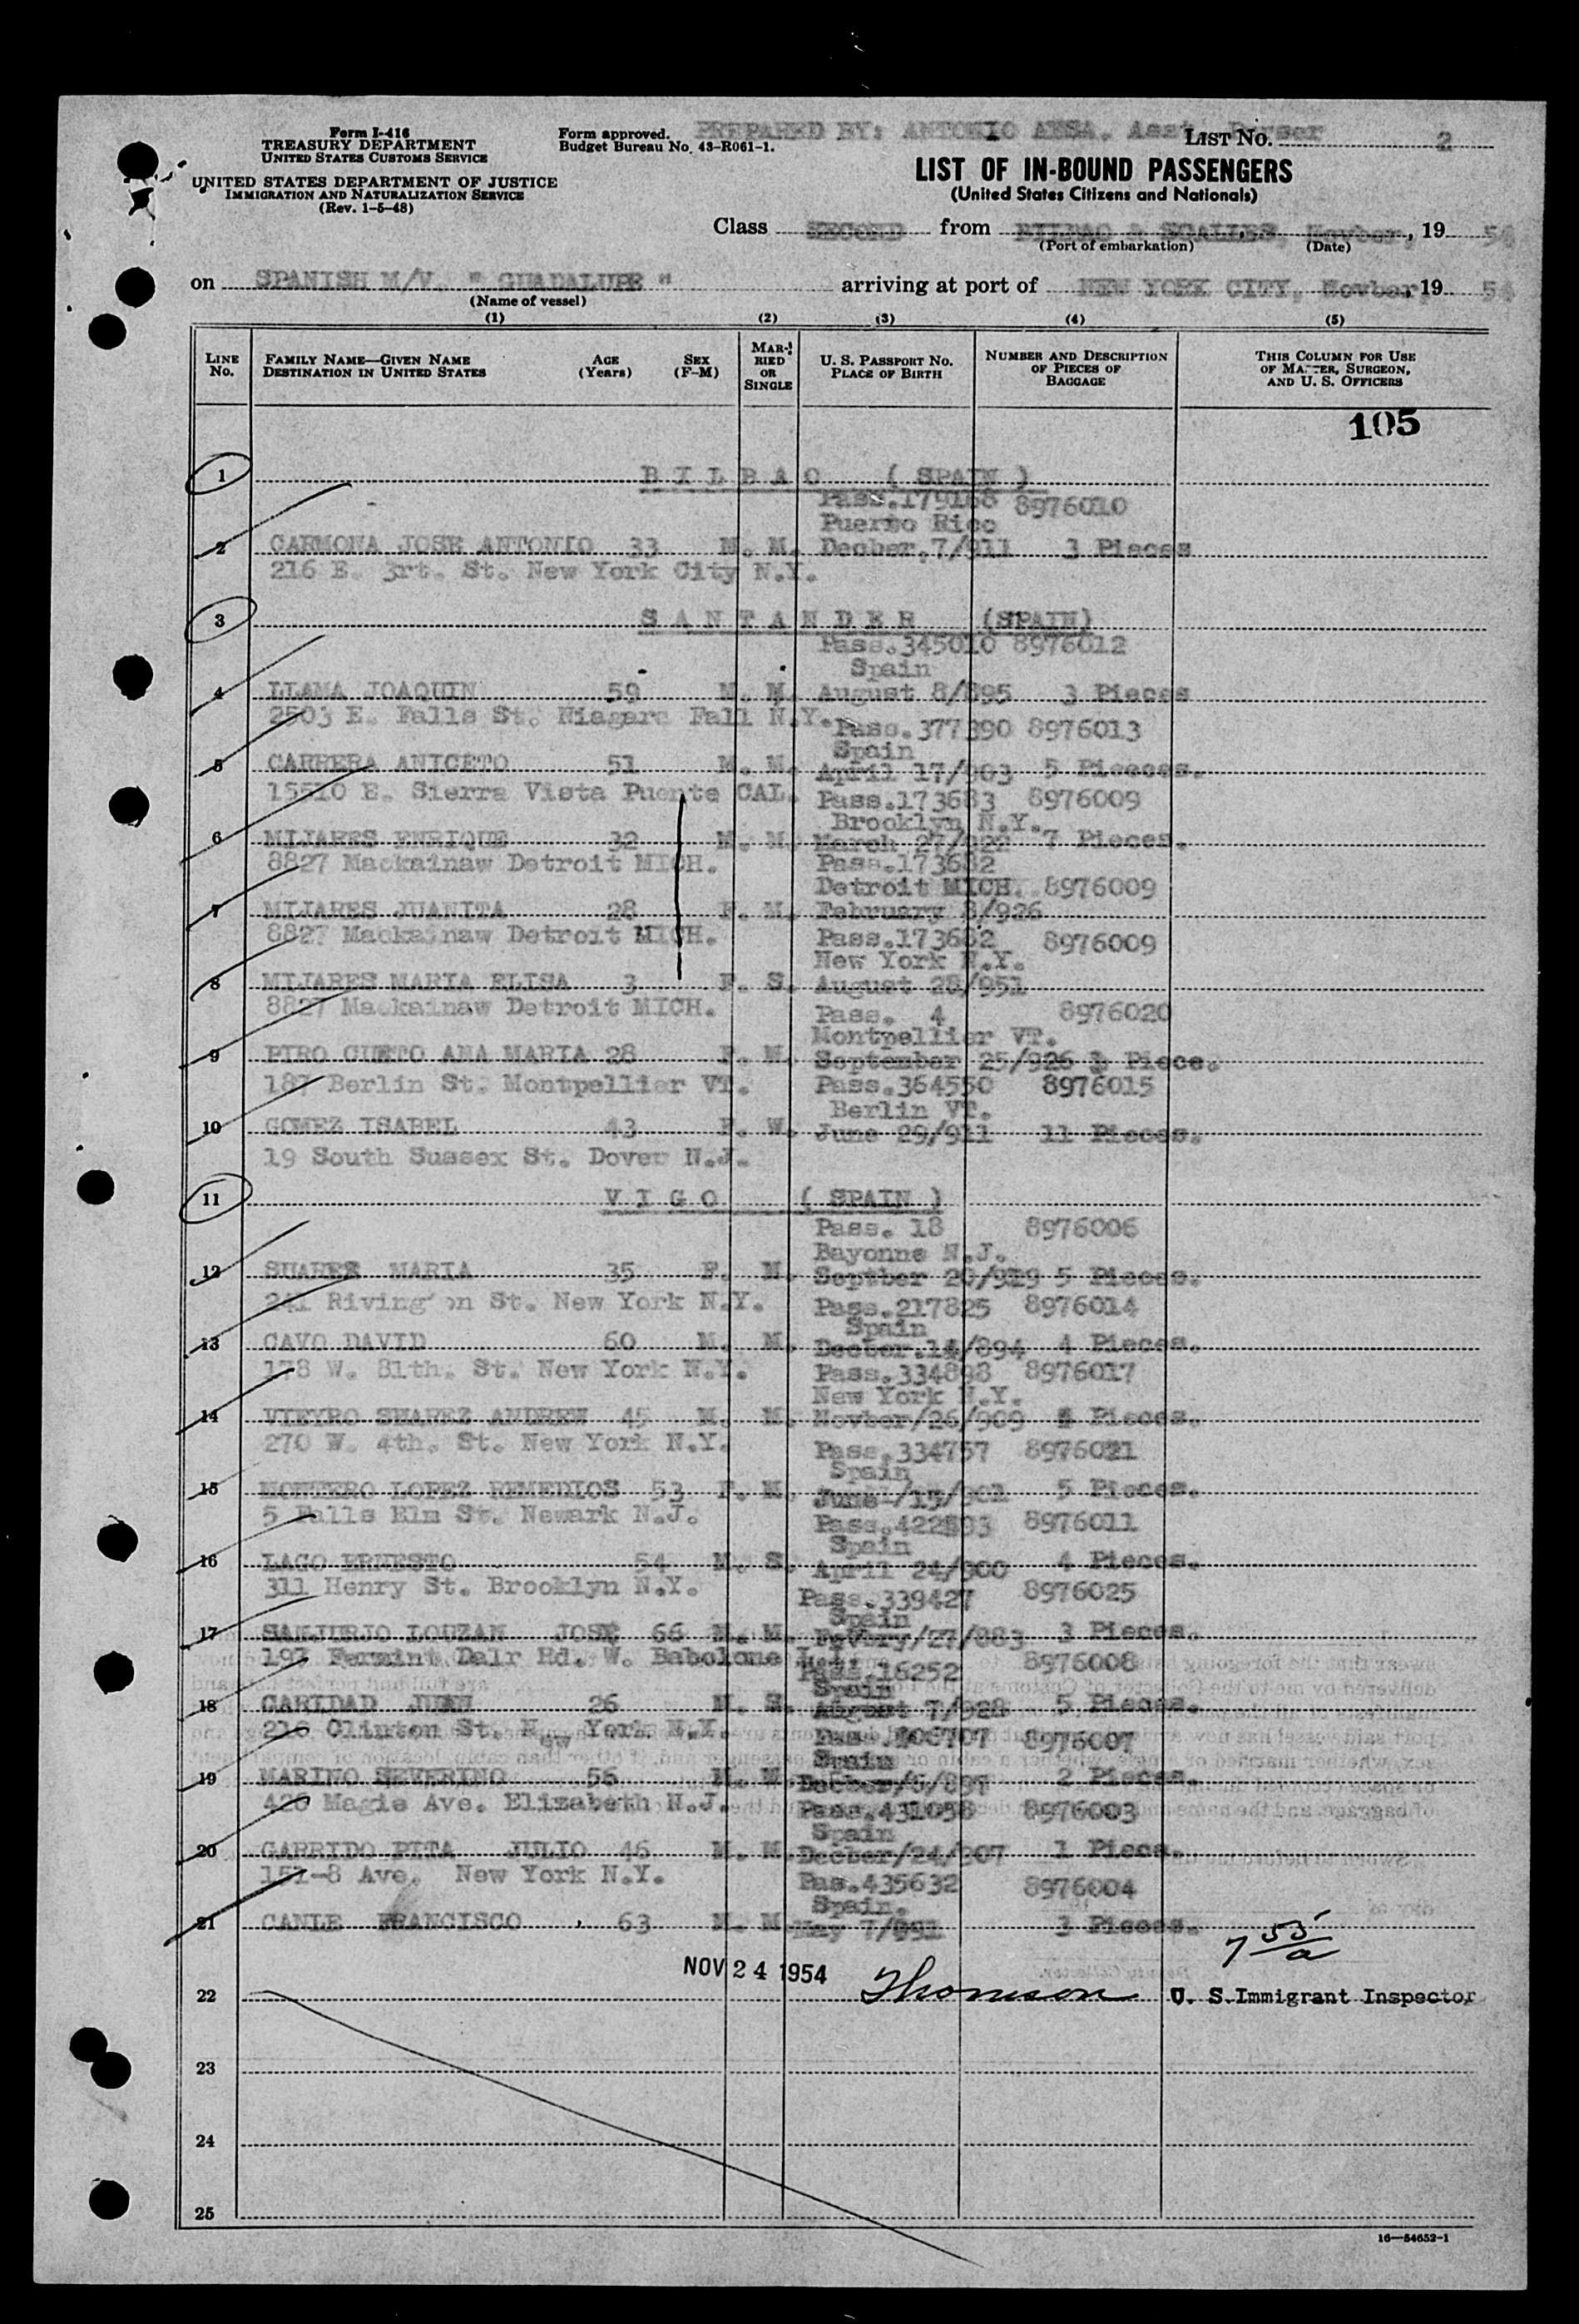 Form I-416
TREASURY DEPARTMENT
UNITED STATES CUSTOMS SERVICE
UNITED STATES DEPARTMENT OF JUSTICE
IMMIGRATION AND NATURALIZATION SERVICE
(Rev. 1-5-48)
Form approved.
Budget Bureau No. 43-R061-1.
PREPARED BY: ANTONIO Asst. Purser
LIST NO. 2
LIST OF IN-BOUND PASSENGERS
(United States Citizens and Nationals)
Class SECOND from BILBAO & SCALLES, Novber, 19 54
(Port of embarkation) (Date)
on SPANISH M/V. " GUADALUPE " arriving at port of NEW YORK CITY, Novber, 19 54
(Name of vessel)
(1) (2) (3) (4) (5)
LINE No. FAMILY NAME—GIVEN NAME DESTINATION IN UNITED STATES AGE (Years) SEX (F-M) MARRIED OR SINGLE U. S. PASSPORT NO. PLACE OF BIRTH NUMBER AND DESCRIPTION OF PIECES OF BAGGAGE THIS COLUMN FOR USE OF MASTER, SURGEON, AND U. S. OFFICERS
105
1 B I L B A O ( SPAIN )
Pass.179168 8976010
Puerto Rico
2 CARMONA JOSE ANTONIO 33 M. M. Decber.7/911 3 Pieces
216 E. 3rt. St. New York City N.Y.
3 S A N T A N D E R (SPAIN)
Pass.345010 8976012
Spain
4 LLAMA JOAQUIN 59 M. M. August 8/895 3 Pieces
2503 E. Falls St. Niagara Fall N.Y.
Pass.377390 8976013
Spain
5 CARRERA ANICETO 51 M. M. April 17/903 5 Pieces.
15510 E. Sierra Vista Puente CAL.
Pass.173683 8976009
Brooklyn N.Y.
6 MIJARES ENRIQUE 32 M. M. March 27/922 7 Pieces.
8827 Mackainaw Detroit MICH.
Pass.173682
Detroit MICH. 8976009
7 MIJARES JUANITA 28 F. M. February 8/926
8827 Mackainaw Detroit MICH.
Pass.173682 8976009
New York N.Y.
8 MIJARES MARIA ELISA 3 F. S. August 28/951
8827 Mackainaw Detroit MICH.
Pass. 4 8976020
Montpellier VT.
9 PIRO CUETO ANA MARIA 28 F. M. September 25/926 Piece.
187 Berlin St. Montpellier VT.
Pass.364550 8976015
Berlin VT.
10 GOMEZ ISABEL 43 F. W. June 29/911 11 Pieces.
19 South Sussex St. Dover N.J.
11 V I G O ( SPAIN )
Pass. 18 8976006
Bayonne N.J.
12 SUAREZ MARIA 35 F. M. Septber 20/919 5 Pieces.
241 Rivington St. New York N.Y.
Pass.217825 8976014
Spain
13 CAVO DAVID 60 M. M. Decber.14/894 4 Pieces.
178 W. 81th. St. New York N.Y.
Pass.334898 8976017
New York N.Y.
14 VIEYRO SUAREZ ANDREW 45 M. M. Novber/26/909 Pieces.
270 W. 4th. St. New York N.Y.
Pass.334757 8976021
Spain
15 MONTERO LOPEZ REMEDIOS 53 F. M. June /15/901 5 Pieces.
5 Falls Elm St. Newark N.J.
8976011
Spain
16 LAGO ERNESTO 54 M. S. April 24/900 4 Pieces.
311 Henry St. Brooklyn N.Y.
Pass.339427 8976025
Spain
17 SANJURJO LOUZAN JOSE 66 M. M. 3 Pieces.
Rd. W.
Pass.16252 8976008
Spain
18 CARIDAD JUAN 26 M. S. August 7/928 5 Pieces.
216 Clinton St. New York N.Y.
8976007
Spain
19 MARINO SEVERINO 56 M. M. 2 Pieces.
420 Magie Ave. Elizabeth N.J.
Pass.431058 8976003
Spain
20 GARRIDO PITA JULIO 46 M. M. Decber/24/907 1 Piece.
151-8 Ave. New York N.Y.
Pas.435632 8976004
Spain.
21 CANLE FRANCISCO 63 M. M. May 7/891 3 Pieces.
7 55/a
NOV 24 1954 Thomson U. S. Immigrant Inspector
22
23
24
25
16—54652-1